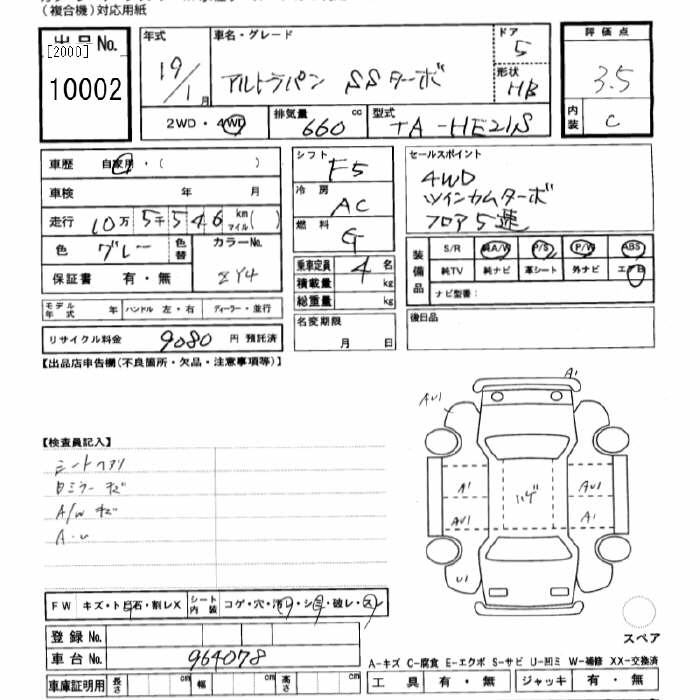 （複合機）対応用紙
出品No.
[2000]
10002
年式
19/1月
車名・グレード
アルトラパン SSターボ
ドア
5
形状
HB
評価点
3.5
内装
C
2WD・4WD
排気量 cc
660
型式
TA-HE21S
車歴 自家用・( )
車検 年 月
走行 10万5千546 km マイル( )
色 グレー
色替
カラーNo.
ZY4
保証書 有・無
モデル年式 年 ハンドル 左・右 ディーラー・並行
リサイクル料金 9080 円 預託済
シフト
F5
冷房
AC
燃料
G
乗車定員 4 名
積載量 kg
総重量 kg
名変期限
月 日
セールスポイント
4WD
ツインカムターボ
フロア5速
装備品
S/R 純A/W P/S P/W ABS
純TV 純ナビ 革シート 外ナビ エアB
ナビ型番：
後日品
【出品店申告欄(不良箇所・欠品・注意事項等)】
【検査員記入】
シートヘアリ
日ミラーキズ
A/W キズ
A・U
A1
AU1
A1
AU1
AU1
A1
U1
ハゲ
FW キズ・ト石・割レX
シート内装 コゲ・穴・汚レ・シミ・破レ・ス
登録No.
車台No. 964078
車庫証明用 長さ cm 幅 cm 高さ cm
スペア
A-キズ C-腐食 E-エクボ S-サビ U-凹ミ W-補修 XX-交換済
工具 有・無 ジャッキ 有・無